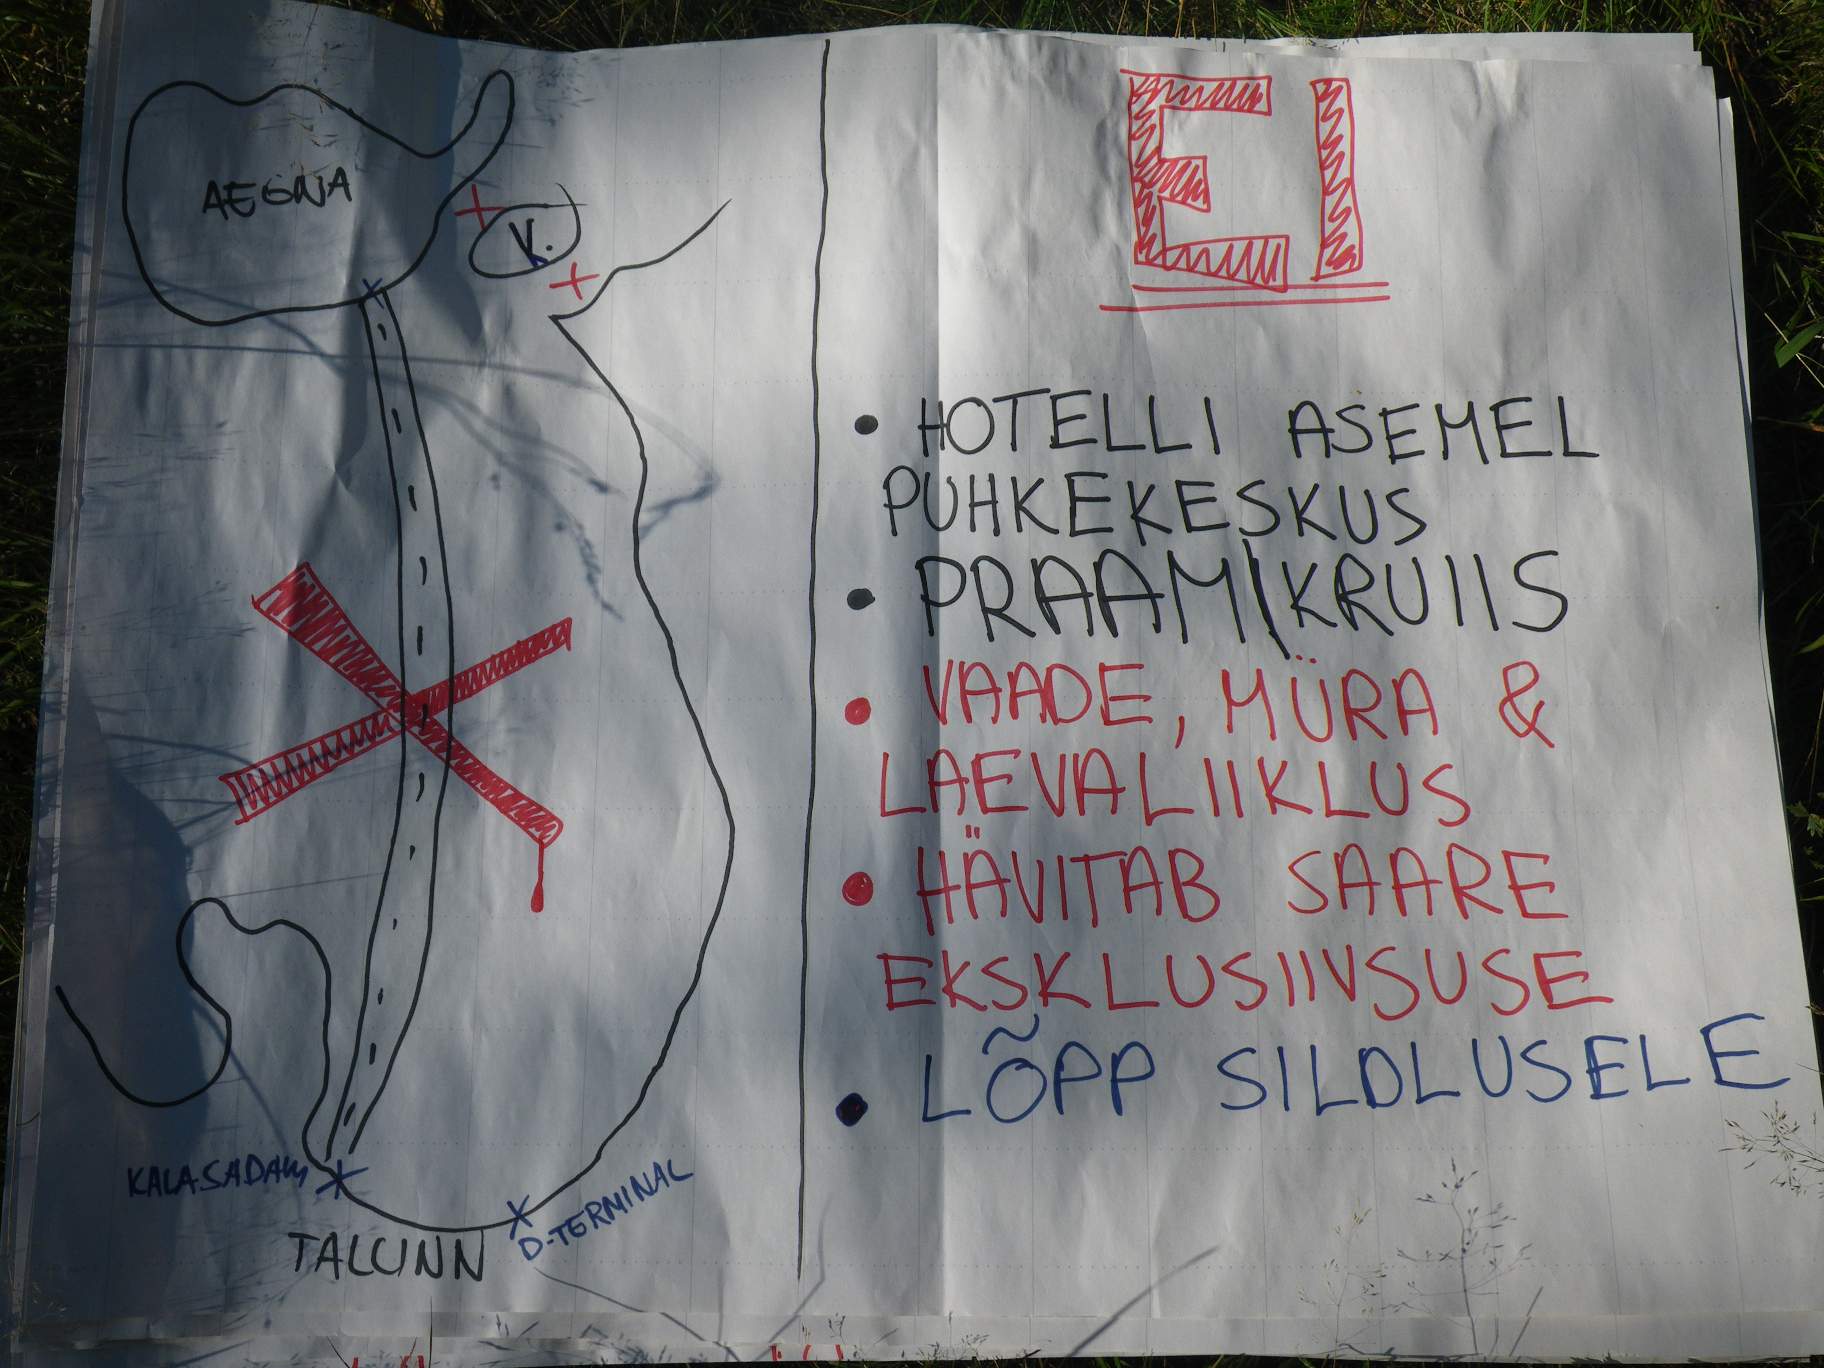 AEGNA
K.
KALASADAM
TALLINN
D-TERMINAL
EI
• HOTELLI ASEMEL
PUHKEKESKUS
• PRAAM\KRUIIS
• VAADE, MÜRA &
LAEVALIIKLUS
• HÄVITAB SAARE
EKSKLUSIIVSUSE
• LÕPP SILDLUSELE